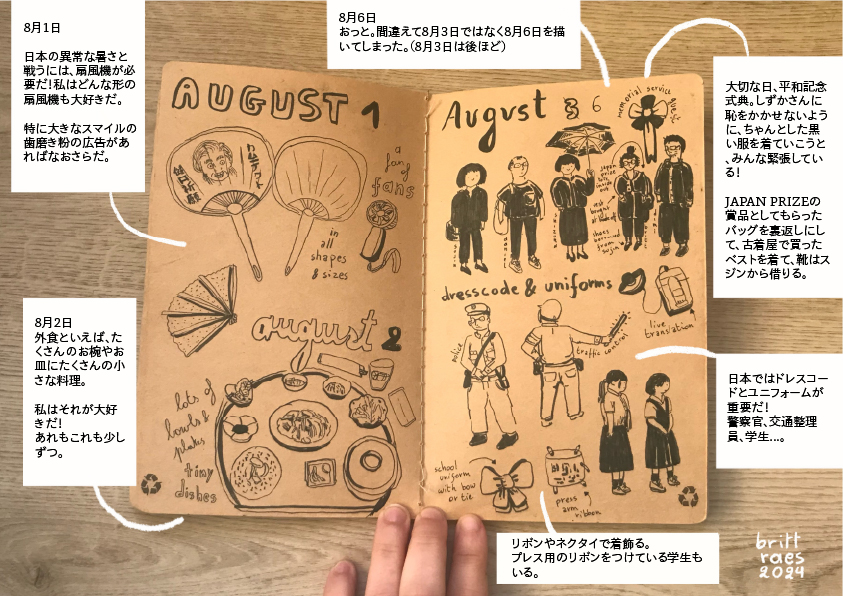 8月1日
日本の異常な暑さと
戦うには、扇風機が必
要だ!私はどんな形の
扇風機も大好きだ。
特に大きなスマイルの
歯磨き粉の広告があ
ればなおさらだ。
8月2日
外食といえば、た
くさんのお椀やお
皿にたくさんの小
さな料理。
私はそれが大好
きだ!
あれもこれも少し
ずつ。
8月6日
おっと。間違えて8月3日ではなく8月6日を描
いてしまった。(8月3日は後ほど)
大切な日、平和記念
式典。しずかさんに
恥をかかせないよう
に、ちゃんとした黒
い服を着ていこうと
、みんな緊張してい
る!
JAPAN PRIZEの
賞品としてもらった
バッグを裏返しにし
て、古着屋で買った
ベストを着て、靴はス
ジンから借りる。
日本ではドレスコー
ドとユニフォームが
重要だ!
警察官、交通整理
員、学生...。
リボンやネクタイで着飾る。
プレス用のリボンをつけている学生も
いる。
AUGUST 1
a
fan of
fans
in
all
shapes
& sizes
august 2
lots of
bowls &
plates
tiny
dishes
August 3 6
memorial service
guest
japan
prize
tote
inside
out
shoes
borrowed
from
sujin
dresscode & uniforms
police
traffic control
live
translation
school
uniform
with bow
or tie
press
arm
ribbon
britt
raes
2024